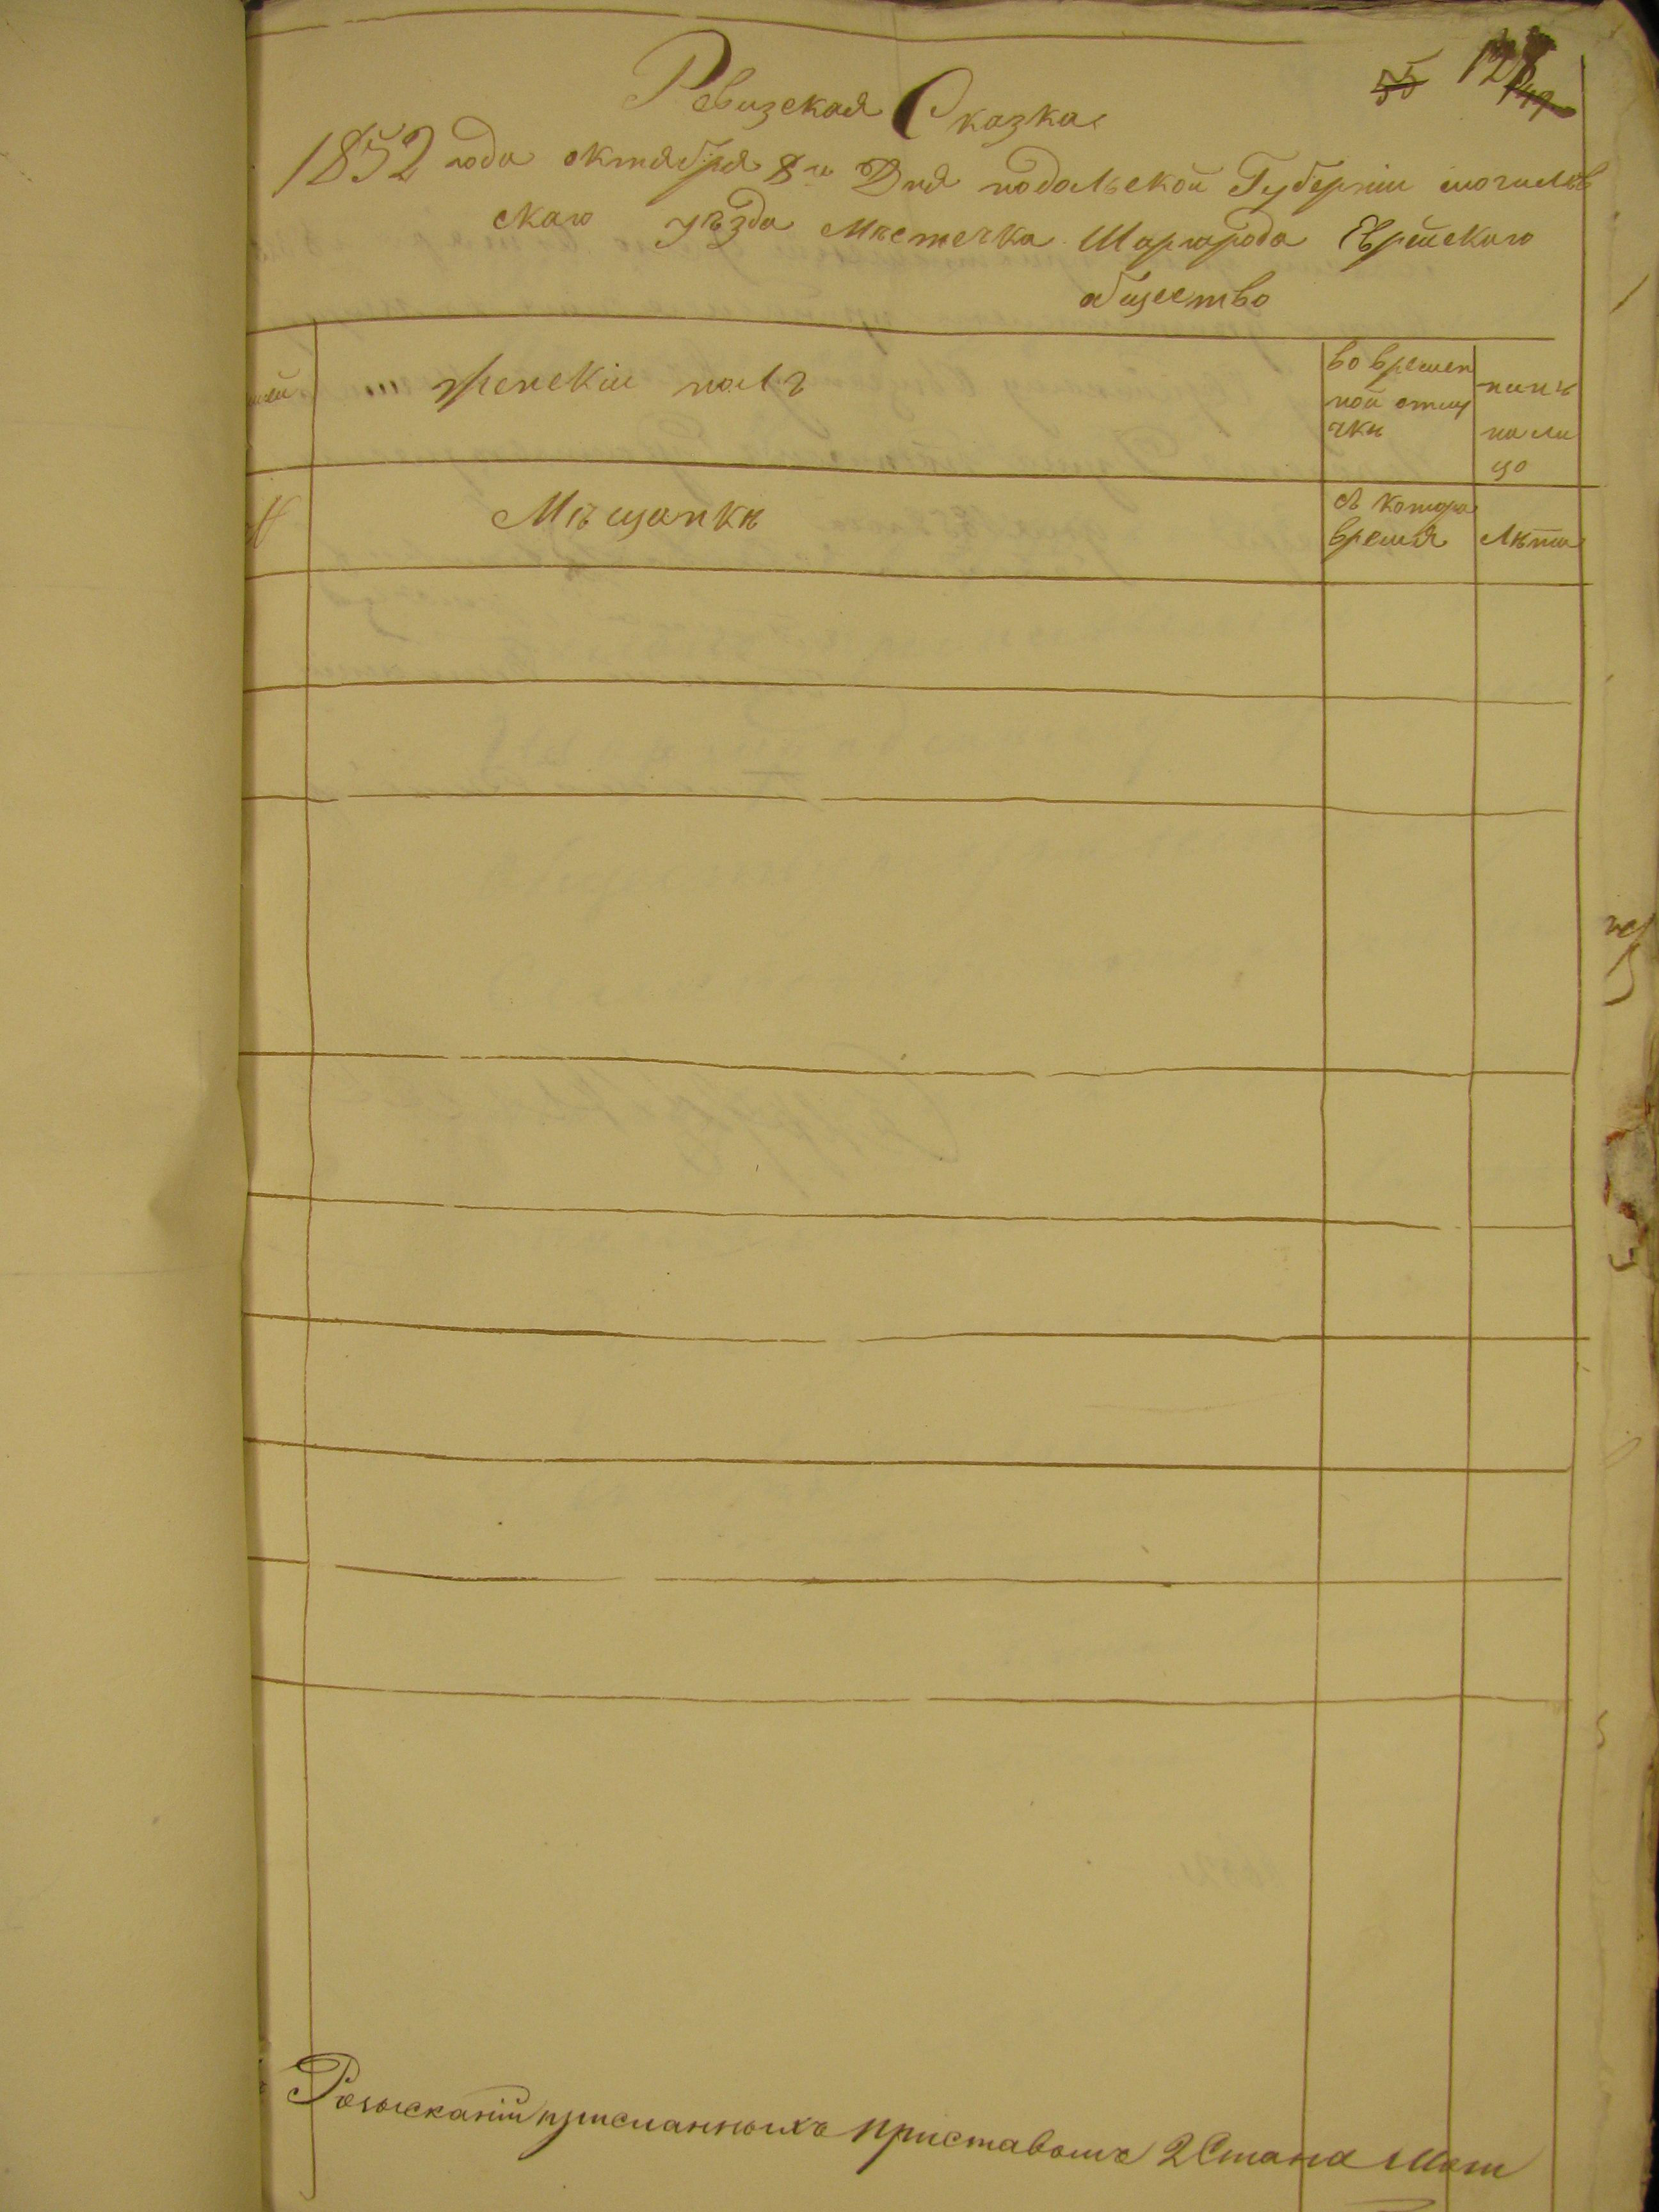 55 128
149
Ревизская Сказка
1852 года октября 8го Дня подольской Губернии могилев
скаго уѣзда Мѣстечка Шаргорода Еврейскаго
общество
женскій полъ
во времен
ной отлу
чкѣ
нынѣ
на ли
цо
Мѣщанкѣ
съ котора
время
Лѣта
присланныхъ приставомъ 2 Стана Мог